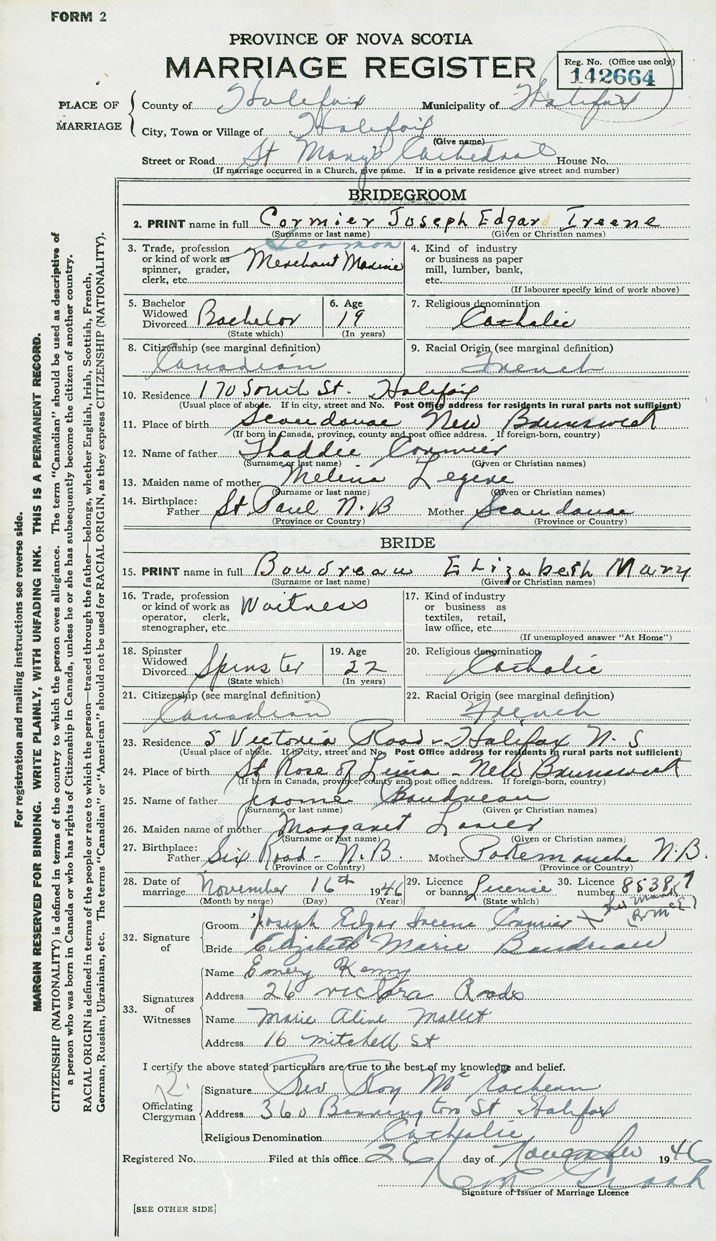 FORM 2
PROVINCE OF NOVA SCOTIA
MARRIAGE REGISTER
Reg. No. (Office use only)
142664
PLACE OF MARRIAGE
County of Halifax Municipality of Halifax
City, Town or Village of Halifax
(Give name)
Street or Road St Mary's Cathedral House No.
(If marriage occurred in a Church, give name. If in a private residence give street and number)
BRIDEGROOM
2. PRINT name in full Cormier Joseph Edgar Ireene
(Surname or last name) (Given or Christian names)
Seaman
3. Trade, profession or kind of work as spinner, grader, clerk, etc. Merchant Marine
4. Kind of industry or business as paper mill, lumber, bank, etc.
(If labourer specify kind of work above)
5. Bachelor Widowed Divorced Bachelor
(State which)
6. Age 19
(In years)
7. Religious denomination Catholic
8. Citizenship (see marginal definition) Canadian
9. Racial Origin (see marginal definition) French
10. Residence 170 South St. Halifax
(Usual place of abode. If in city, street and No. Post Office address for residents in rural parts not sufficient)
11. Place of birth Scoudouc New Brunswick
(If born in Canada, province, county and post office address. If foreign-born, country)
12. Name of father Thaddee Cormier
(Surname or last name) (Given or Christian names)
13. Maiden name of mother Melina Legere
(Surname or last name) (Given or Christian names)
14. Birthplace: Father St Paul N.B Mother Scoudouc
(Province or Country) (Province or Country)
BRIDE
15. PRINT name in full Boudreau Elizabeth Mary
(Surname or last name) (Given or Christian names)
16. Trade, profession or kind of work as operator, clerk, stenographer, etc. Waitress
17. Kind of industry or business as textiles, retail, law office, etc.
(If unemployed answer "At Home")
18. Spinster Widowed Divorced Spinster
(State which)
19. Age 22
(In years)
20. Religious denomination Catholic
21. Citizenship (see marginal definition) Canadian
22. Racial Origin (see marginal definition) French
23. Residence 5 Victoria Road - Halifax N.S
(Usual place of abode. If in city, street and No. Post Office address for residents in rural parts not sufficient)
24. Place of birth St Rose of Lima - New Brunswick
(If born in Canada, province, county and post office address. If foreign-born, country)
25. Name of father Jerome Boudreau
(Surname or last name) (Given or Christian names)
26. Maiden name of mother Margaret
(Surname or last name) (Given or Christian names)
27. Birthplace: Father Six Road - N.B. Mother Pokemouche N.B.
(Province or Country) (Province or Country)
28. Date of marriage November 16th 1946
(Month by name) (Day) (Year)
29. Licence or banns License
(State which)
30. Licence number 85389
32. Signature of
Groom Joseph Edgar Ireene Cormier X his Mark
Bride Elizabeth Marie Boudreau
33. Signatures of Witnesses
Name Emery Kenny
Address 26 Victora Roads
Name Marie Aline Mallet
Address 16 mitchell St
I certify the above stated particulars are true to the best of my knowledge and belief.
Officiating Clergyman
Signature Rev Roy
Address 360 Barrington St Halifax
Religious Denomination Catholic
Registered No. Filed at this office 26 day of November 1946
Signature of Issuer of Marriage Licence
[SEE OTHER SIDE]
For registration and mailing instructions see reverse side.
MARGIN RESERVED FOR BINDING. WRITE PLAINLY, WITH UNFADING INK. THIS IS A PERMANENT RECORD.
CITIZENSHIP (NATIONALITY) is defined in terms of the country to which the person owes allegiance. The term "Canadian" should be used as descriptive of
a person who was born in Canada or who has rights of Citizenship in Canada, unless he or she has subsequently become the citizen of another country.
RACIAL ORIGIN is defined in terms of the people or race to which the person—traced through the father—belongs, whether English, Irish, Scottish, French,
German, Russian, Ukrainian, etc. The terms "Canadian" or "American" should not be used for RACIAL ORIGIN, as they express CITIZENSHIP (NATIONALITY).